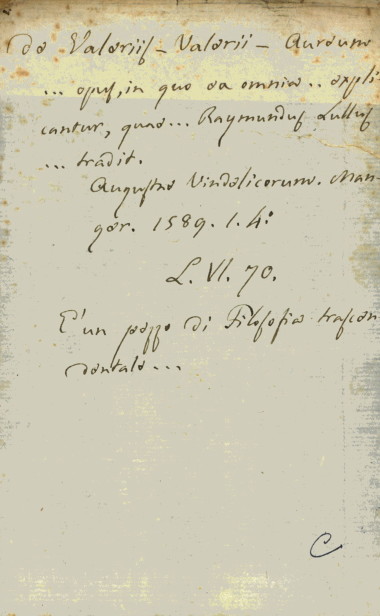 De Valeriis - Valerii - Aureum
... opus, in quo ea omnia .. expli-
cantur, quae ... Raymundus Lullus
... tradit.
Augustae Vindelicorum. Man-
ger. 1589. 1. 4:
L. VI. 70.
E' un pezzo di Filosofia trascen
dentale ...
C